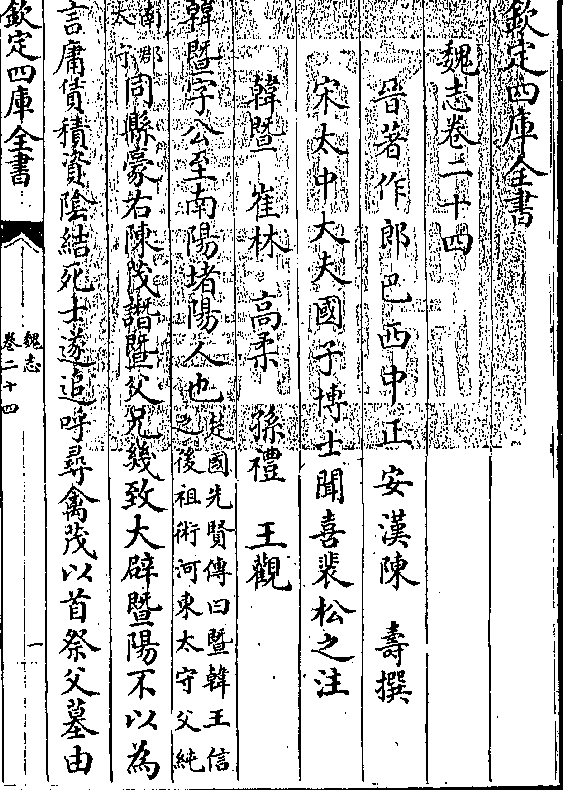 欽定四庫全書
魏志卷二十四
晉著作郎巴西中正安漢陳 壽撰
宋太中大夫國子博士聞喜裴松之注
韓暨 崔林 高柔 孫禮 王觀
韓暨字公至南陽堵陽人也
楚國先賢傳曰暨韓王信
之後祖術河東太守父純
南郡
太守
同縣豪右陳茂譖暨父兄幾致大辟暨陽不以為
言庸賃積資陰結死士遂追呼尋禽茂以首祭父墓由
欽定四庫全書
魏志
卷二十四
一